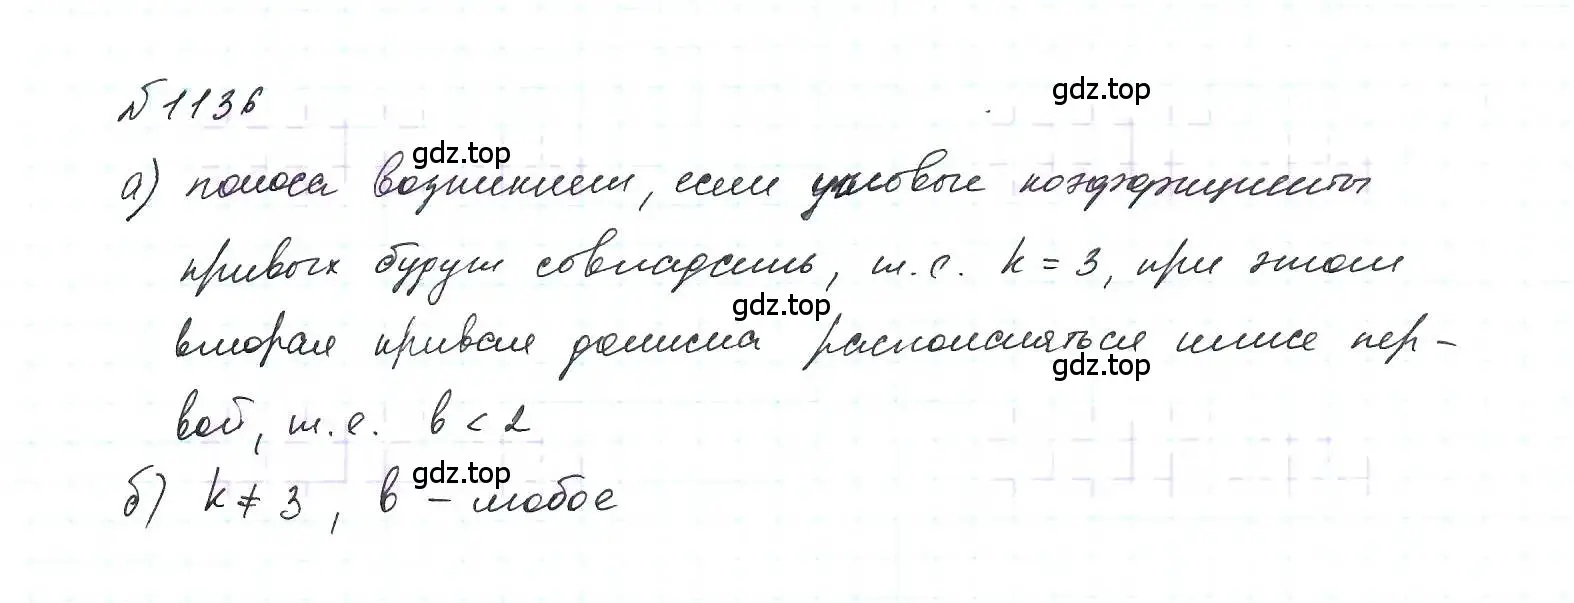 №1136
gdz.top
gdz.top
а) полоса возникнет, если угловые коэффициенты
прямых будут совпадать, т.е. k = 3, при этом
gdz.top
вторая прямая должна располагаться ниже пер-
gdz.top
вой, т.е. b < 2
gdz.top
б) k ≠ 3, b - любое